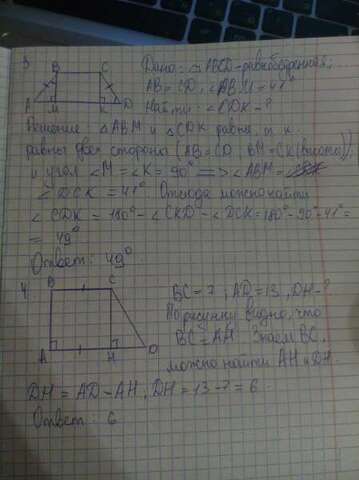 3
B C
A M K D
Дано: ABCD - равнобедренная;
AB = CD, ∠ABM = 41°
Найти: ∠CDK - ?
Решение △ABM и △CDK равны, т. к.
равны две стороны (AB = CD, BM = CK (высоты))
и угол ∠M = ∠K = 90° => ∠ABM =
∠DCK = 41°. Отсюда можно найти
∠CDK = 180° - ∠CKD - ∠DCK = 180° - 90° - 41° =
= 49°
Ответ: 49°
4.
B C
A H D
BC = 7, AD = 13, DH - ?
По рисунку видно, что
BC = AH. Зная BC,
можно найти AH и DH.
DH = AD - AH, DH = 13 - 7 = 6.
Ответ: 6